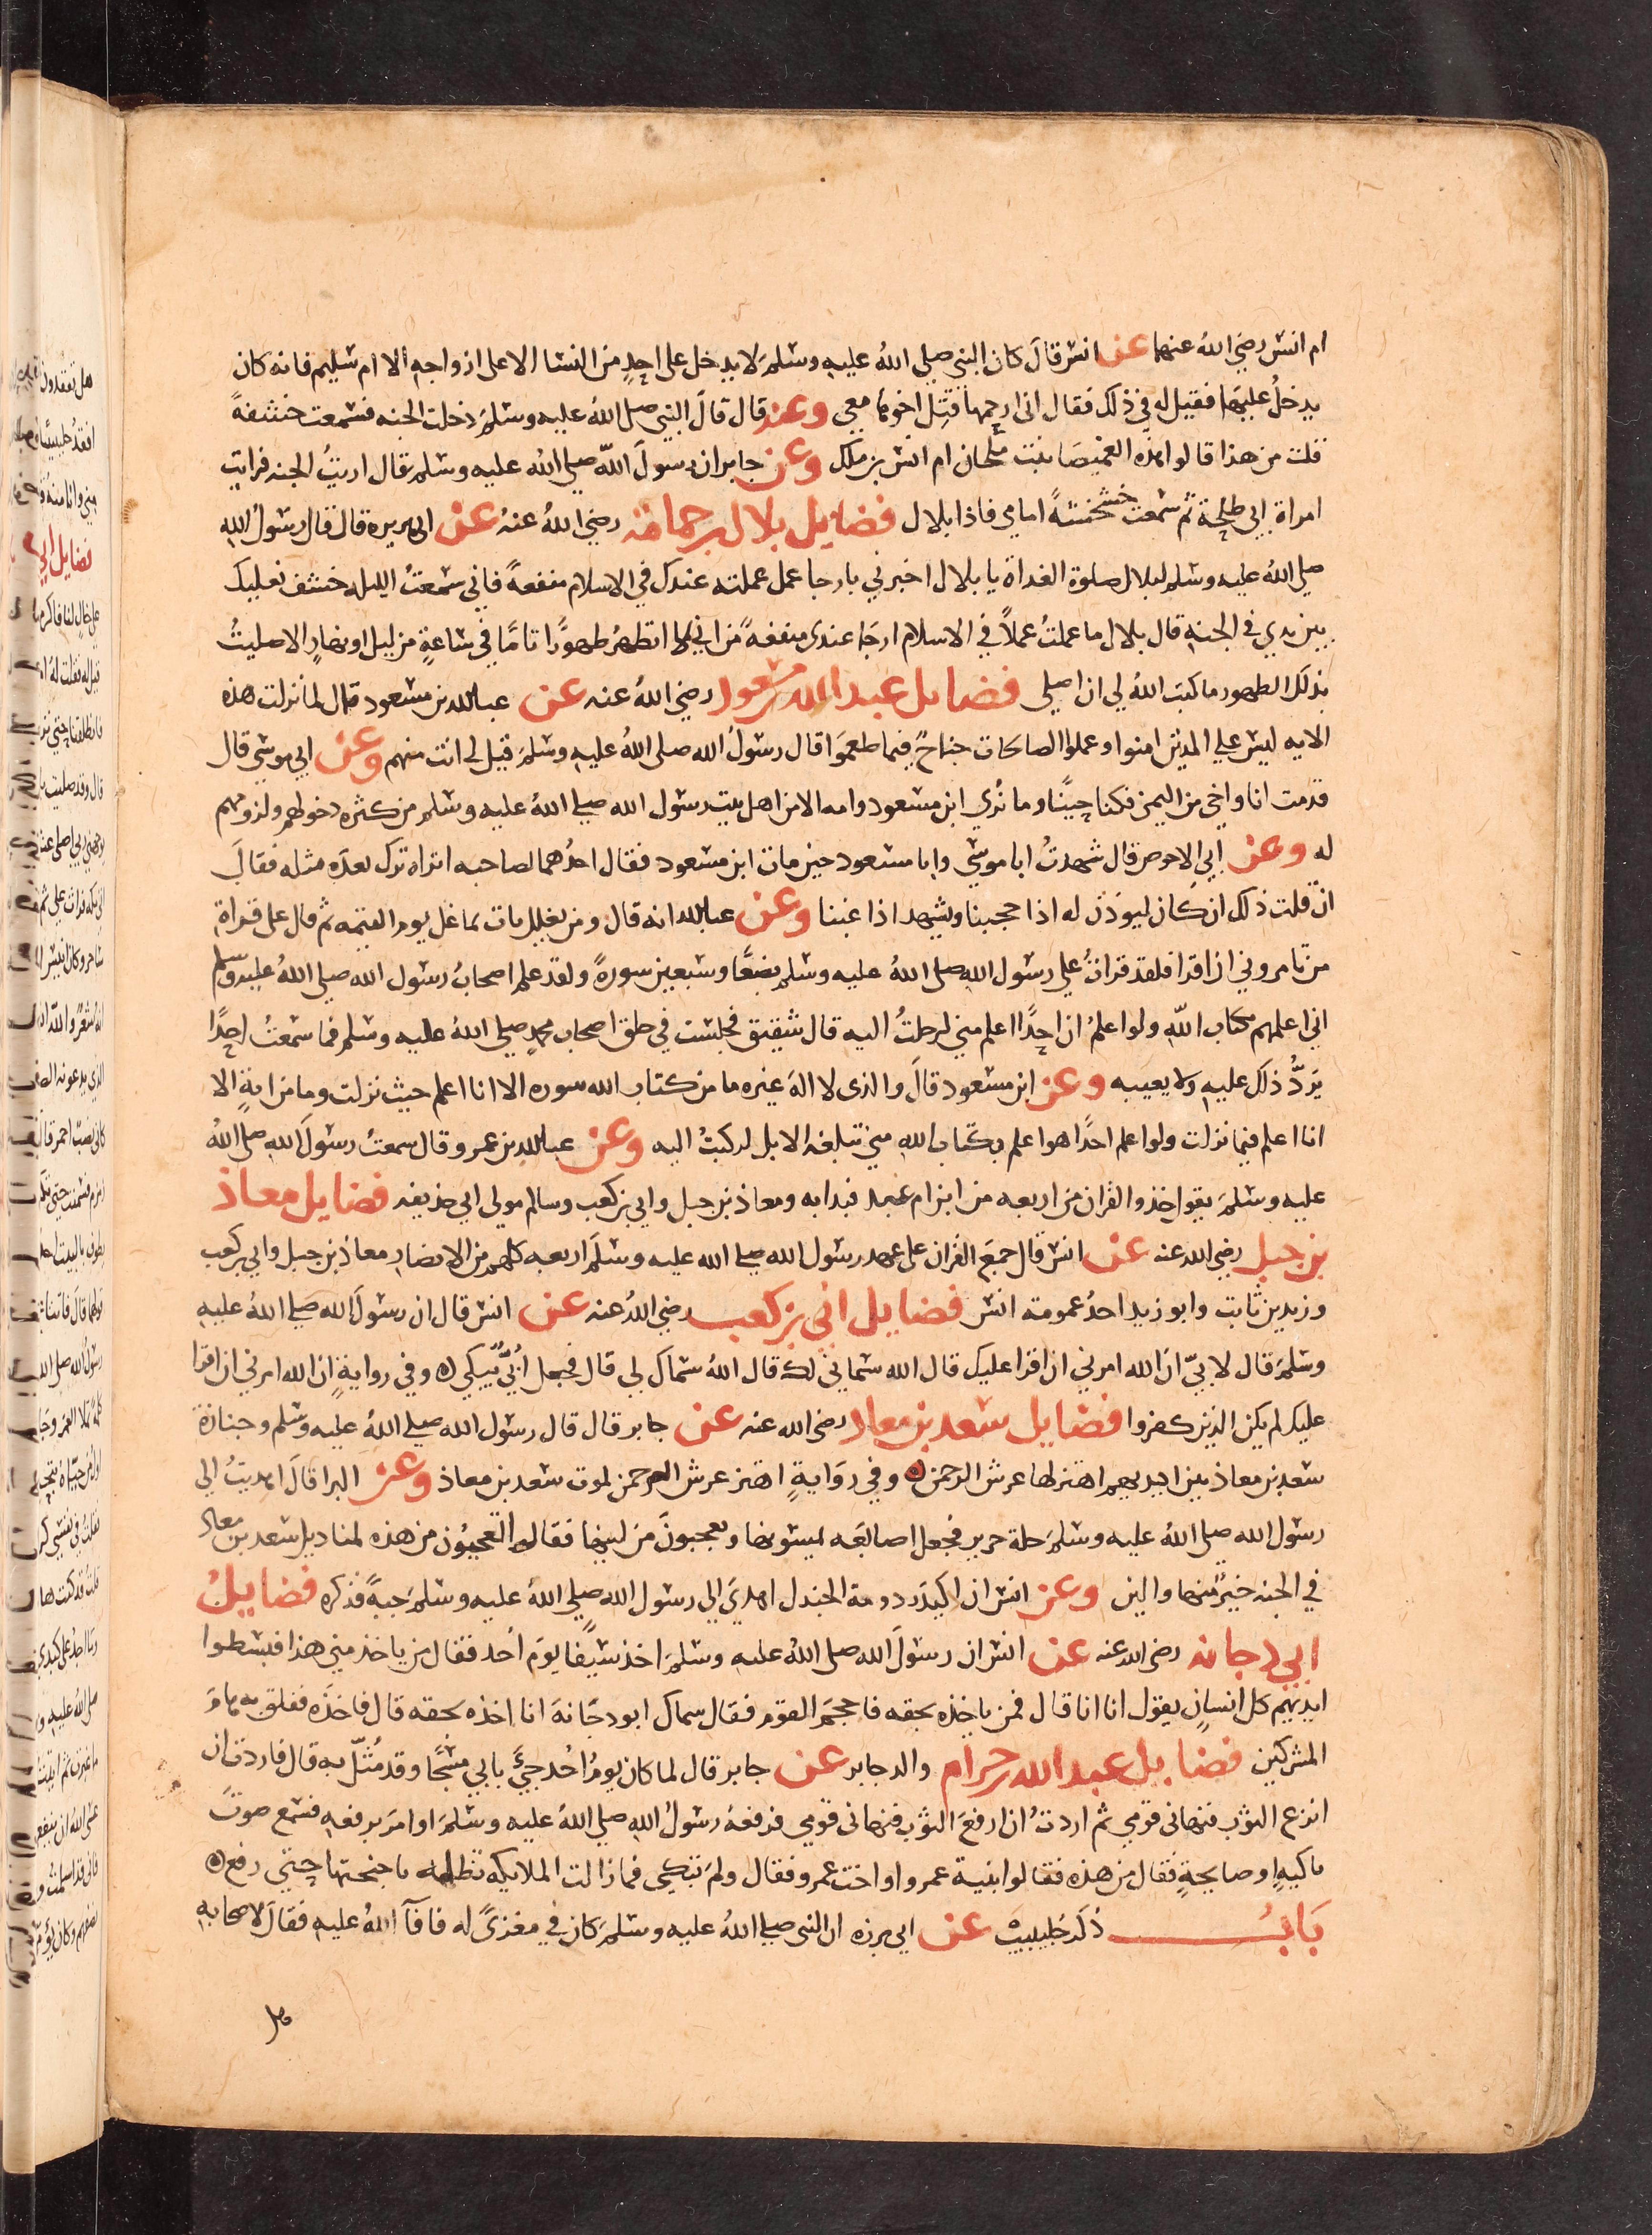 ام انس رضي الله عنها عن انس قال كان النبي صلي الله عليه وسلم لا يدخل علي احد من النسا الا علي ازواجه الا ام سليم فانه كان
يدخل عليها فقيل له في ذلك فقال اني ارحمها قتل اخوها معي وعنه قال قال النبي صلى الله عليه وسلم دخلت الجنه فسمعت خشفة
قلت من هذا قالوا هذه الغميصا بنت ملحان ام انس بن ملك وعن جابر ان رسول الله صلي الله عليه وسلم قال اريت الجنه فرايت
امراة ابي طلحة ثم سمعت خشخشة امامي فاذا بلال فضايل بلال بن حمامه رضي الله عنه عن ابي هريره قال قال رسول الله
صلي الله عليه وسلم لبلال صلوة الغداة يا بلال اخبرني بارجا عمل عملته عندك في الاسلام منفعة فاني سمعت الليله خشف نعليك
بين يدي في الجنه قال بلال ما عملت عملا في الاسلام ارجا عندي منفعة من اني لما اتطهر طهورا تاما في ساعة من ليل او نهار الا صليت
بذلك الطهور ما كتب الله لي ان اصلي فضايل عبد الله بن مسعود رضي الله عنه عن عبد الله بن مسعود قال لما نزلت هذه
الايه ليس علي الذين امنوا وعملوا الصالحات جناح فيما طعموا قال رسول الله صلى الله عليه وسلم قيل لي انت منهم وعن ابي موسي قال
قدمت انا واخي من اليمن فكنا حينا وما نري ابن مسعود وامه الا من اهل بيت رسول الله صلي الله عليه وسلم من كثره دخولهم ولزومهم
له وعن ابي الاحوص قال شهدت ابا موسي وابا مسعود حين مات ابن مسعود فقال احدهما لصاحبه اتراه ترك بعده مثله فقال
ان قلت ذلك ان كان ليوذن له اذا حجبنا ويشهد اذا غبنا وعن عبد الله انه قال ومن يغلل يات بما غل يوم القيمه ثم قال علي قراة
من تامروني ان اقرا فلقد قرات علي رسول الله صلى الله عليه وسلم بضعا وسبعين سورة ولقد علم اصحاب رسول الله صلي الله عليه وسلم
اني اعلمهم بكتاب الله ولو اعلم ان احدا اعلم مني لرحلت اليه قال شقيق فجلست في حلق اصحاب محمد صلي الله عليه وسلم فما سمعت احدا
يرد ذلك عليه ولا يعيبه وعن ابن مسعود قال والذي لا اله غيره ما من كتاب الله سوره الا انا اعلم حيث نزلت وما من اية الا
انا اعلم فيما نزلت ولو اعلم احدا هو اعلم بكتاب الله مني تبلغه الابل لركبت اليه وعن عبد الله بن عمرو قال سمعت رسول الله صلى الله
عليه وسلم يقول خذوا القران من اربعه من ابن ام عبد فبدا به ومعاذ بن جبل وابي بن كعب وسالم مولي ابي حذيفه فضايل معاذ
بن جبل رضي الله عنه عن انس قال جمع القران علي عهد رسول الله صلي الله عليه وسلم اربعه كلهم من الانصار معاذ بن جبل وابي بن كعب
وزيد بن ثابت وابو زيد احد عمومة انس فضايل ابي بن كعب رضي الله عنه عن انس قال ان رسول الله صلي الله عليه
وسلم قال لابي ان الله امرني ان اقرا عليك قال الله سماني لك قال الله سماك لي قال فجعل ابي يبكي وفي رواية ان الله امرني ان اقرا
عليك لم يكن الذين كفروا فضايل سعد بن معاذ رضي الله عنه عن جابر قال قال رسول الله صلي الله عليه وسلم وجنازة
سعد بن معاذ بين ايديهم اهتز لها عرش الرحمن وفي رواية اهتز عرش الرحمن لموت سعد بن معاذ وعن البرا قال اهديت الي
رسول الله صلى الله عليه وسلم حلة حرير فجعل اصحابه يمسونها ويعجبون من لينها فقال اتعجبون من هذه لمناديل سعد بن معاذ
في الجنه خير منها والين وعن انس ان اكيدر دومة الجندل اهدي الي رسول الله صلي الله عليه وسلم جبة فذكره فضايل
ابي دجانه رضي الله عنه عن انس ان رسول الله صلى الله عليه وسلم اخذ سيفا يوم احد فقال من ياخذ مني هذا فبسطوا
ايديهم كل انسان يقول انا انا قال فمن ياخذه بحقه فاحجم القوم فقال سماك ابو دجانة انا اخذه بحقه قال فاخذه ففلق به هام
المشركين فضايل عبد الله بن حرام والد جابر عن جابر قال لما كان يوم احد جيء بابي مسجا وقد مثل به قال فاردت ان
انزع الثوب فنهاني قومي ثم اردت ان ارفع الثوب فنهاني قومي فرفعه رسول الله صلي الله عليه وسلم او امر برفعه فسمع صوت
باكيه او صايحة فقال من هذه فقالوا ابنة عمرو او اخت عمرو فقال ولم تبكي فما زالت الملايكه تظله باجنحتها حتي رفع
باب ذكر جليبيب عن ابي برزه ان النبي صلي الله عليه وسلم كان في مغزي له فافآ الله عليه فقال لاصحابه
هل